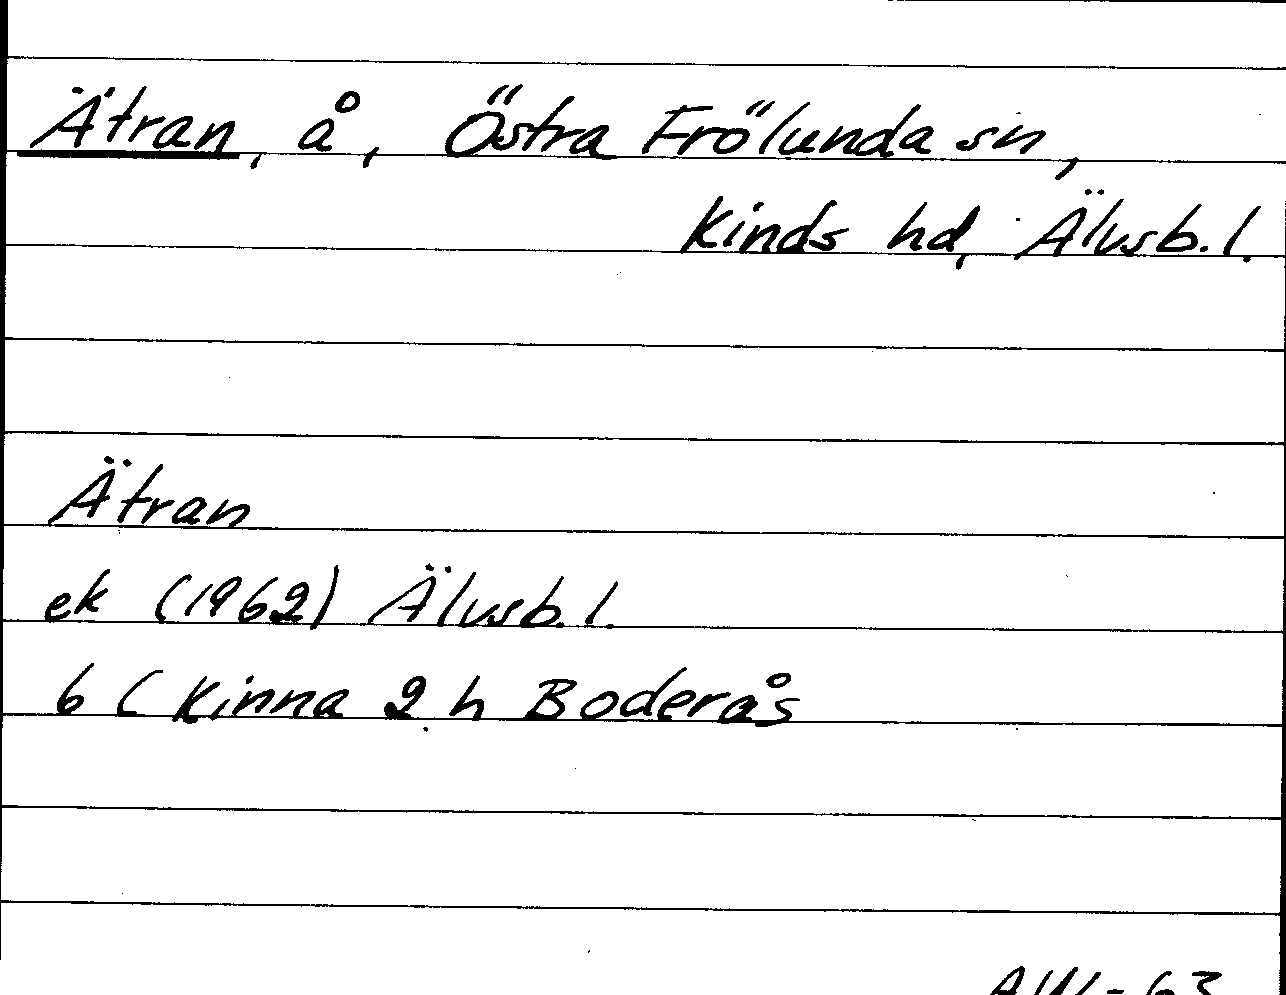 Ätran, å, Östra Frölunda sn,
Kinds hd, Älvsb.l.
Ätran
ek (1962) Älvsb.l.
6 C Kinna 2 h Boderås